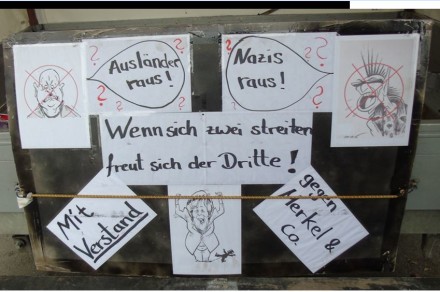 ? ? Ausländer raus! ? ?
? Nazis raus! ? ? ?
Wenn sich zwei streiten
freut sich der Dritte!
Mit
Verstand
gegen
Merkel &
Co.